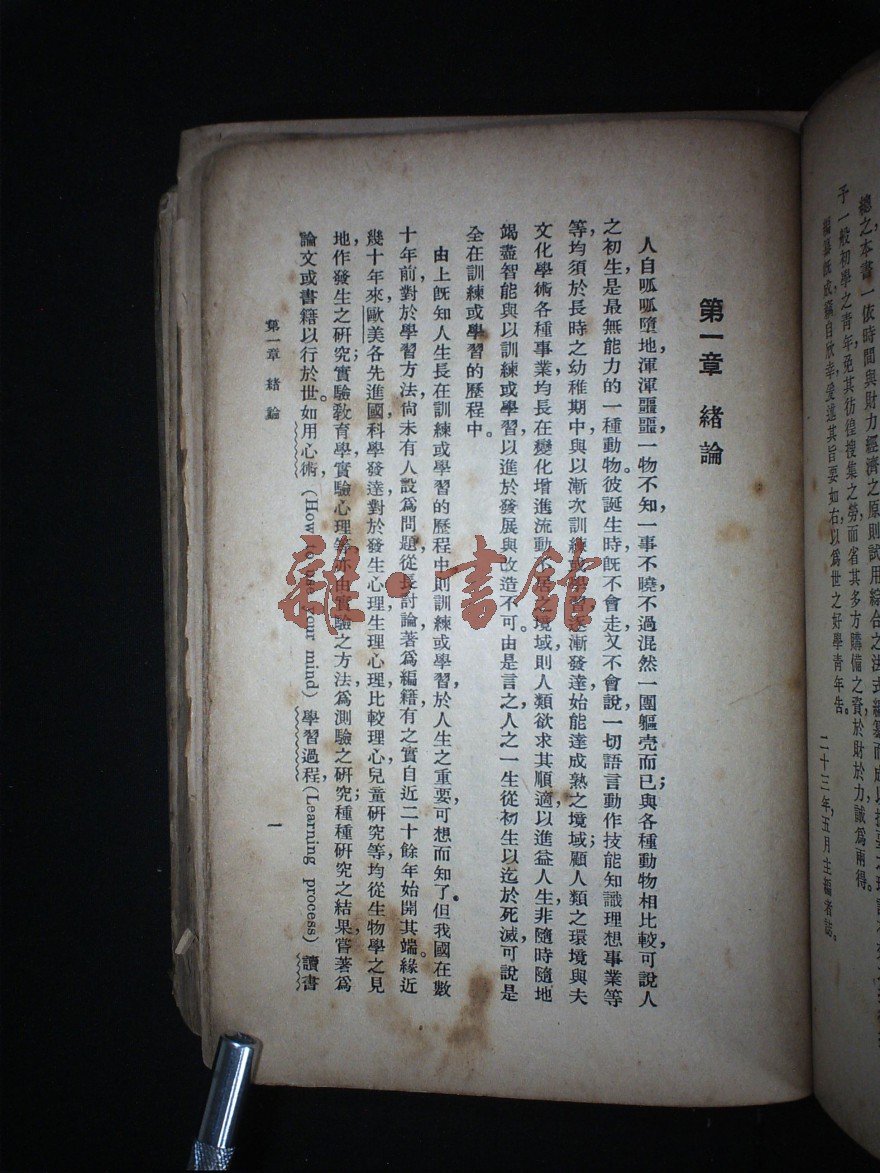 總之本書一依時間與財力經濟之原則試用綜合之法式編纂而成以
予一般初學之青年免其彷徨搜集之勞而省其多方購備之資於財於力誠爲兩得。
編纂旣成竊自欣幸爰述其旨要如右以爲世之好學青年告。
二十三年五月主編者誌。
第一章 緒論
人自呱呱墮地渾渾噩噩一物不知一事不曉不過混然一團軀壳而已與各種動物相比較可說人
之初生是最無能力的一種動物。彼誕生時旣不會走又不會說一切語言動作技能知識理想事業等
等均須於長時之幼稚期中與以漸次訓練或學習逐漸發達始能達成熟之境域顧人類之環境與夫
文化學術各種事業均長在變化增進流動之境域則人類欲求其順適以進益人生非隨時隨地
竭盡智能與以訓練或學習以進於發展與改造不可。由是言之人之一生從初生以迄於死滅可說是
全在訓練或學習的歷程中。
由上旣知人生長在訓練或學習的歷程中則訓練或學習於人生之重要可想而知了但我國在數
十年前對於學習方法尙未有人設爲問題從長討論著爲編籍有之實自近二十餘年始開其端緣近
幾十年來歐美各先進國科學發達對於發生心理生理心理比較理心兒童研究等均從生物學之見
地作發生之研究實驗敎育學實驗心理等亦由實驗之方法爲測驗之研究種種研究之結果嘗著爲
論文或書籍以行於世。如用心術,(How to use your mind)學習過程,(Learning process)讀書
第一章 緒論
一
雜·書館